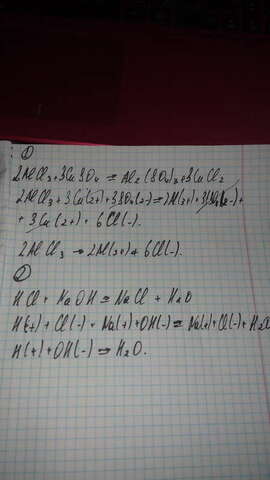 ①
2AlCl₃+3CuSO₄ = Al₂(SO₄)₃+3CuCl₂
2AlCl₃+3Cu(2+)+3SO₄(2-)=2Al(3+)+3SO₄(2-)+
+ 3Cu(2+) + 6Cl(-).
2AlCl₃ → 2Al(3+)+ 6Cl(-).
②
HCl + NaOH = NaCl + H₂O
H(+) + Cl(-) + Na(+)+OH(-) = Na(+)+Cl(-)+H₂O
H(+)+OH(-) = H₂O.